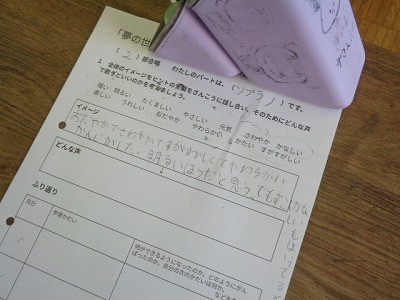 「夢の世
(2) 部合唱 わたしのパートは、(ソプラノ) です。
1 全体のイメージをヒントの言葉をさんこうに話し合い、そのためにどんな声
で歌ずいいのかを考えましょう。
強い 明るい たくましい やさしい 元気 さわやか かなしい
美しい うれしい おだやか やわらかい かたい すがすがしい
イメージ
おだやかでさわやかですがすがしくてやわらかい
かんじがした。明るいほうだと思うです。
どんな声
ふり返り
月日
学習かだい
何ができるようになったのか、どのようにがん
ばったのか、自分の次のかだいは何か、
などを